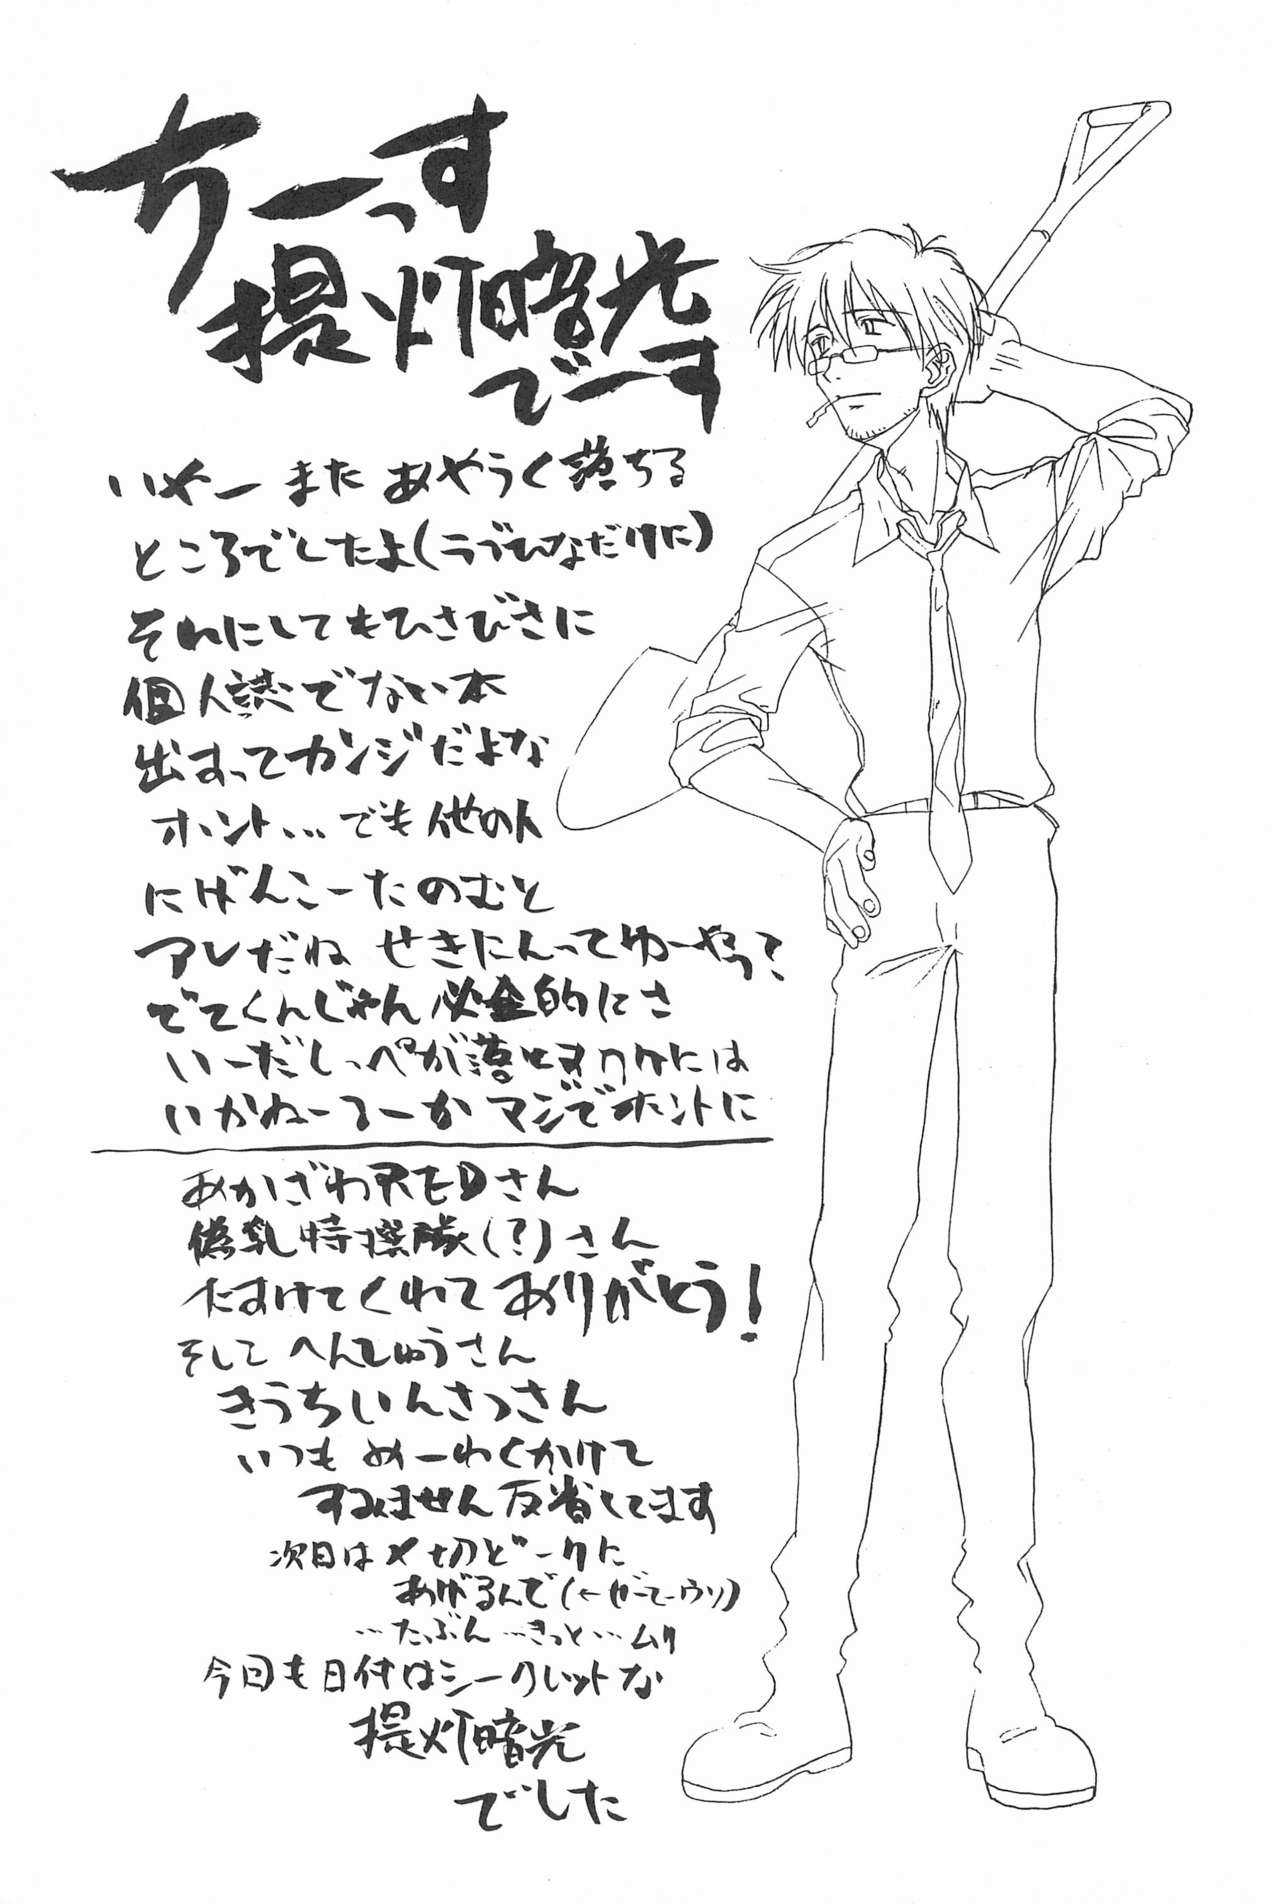 ちーっす
提灯暗光
でーす
いやー また あやうく落ちる
ところでしたよ(ラブひなだけに)
それにしてもひさびさに
個人誌でない本
出すってカンジだよな
ホント… でも他の人
にげんこーたのむと
アレだね せきにんってゆーやつ?
でてくんじゃん 必全的にさ
いーだしっぺが落とすワケには
いかねーつーか マジでホントに
あかざわREDさん
偽乳特捜隊(?)さん
たすけてくれて ありがとう!
そして へんしゅうさん
きうちいんさつさん
いつも めーわくかけて
すみません 反省してます
次回は〆切どーりに
あげるんで(←ぜってーウソ)
…たぶん…きっと…ムリ
今回も日付はシークレットな
提灯暗光
でした